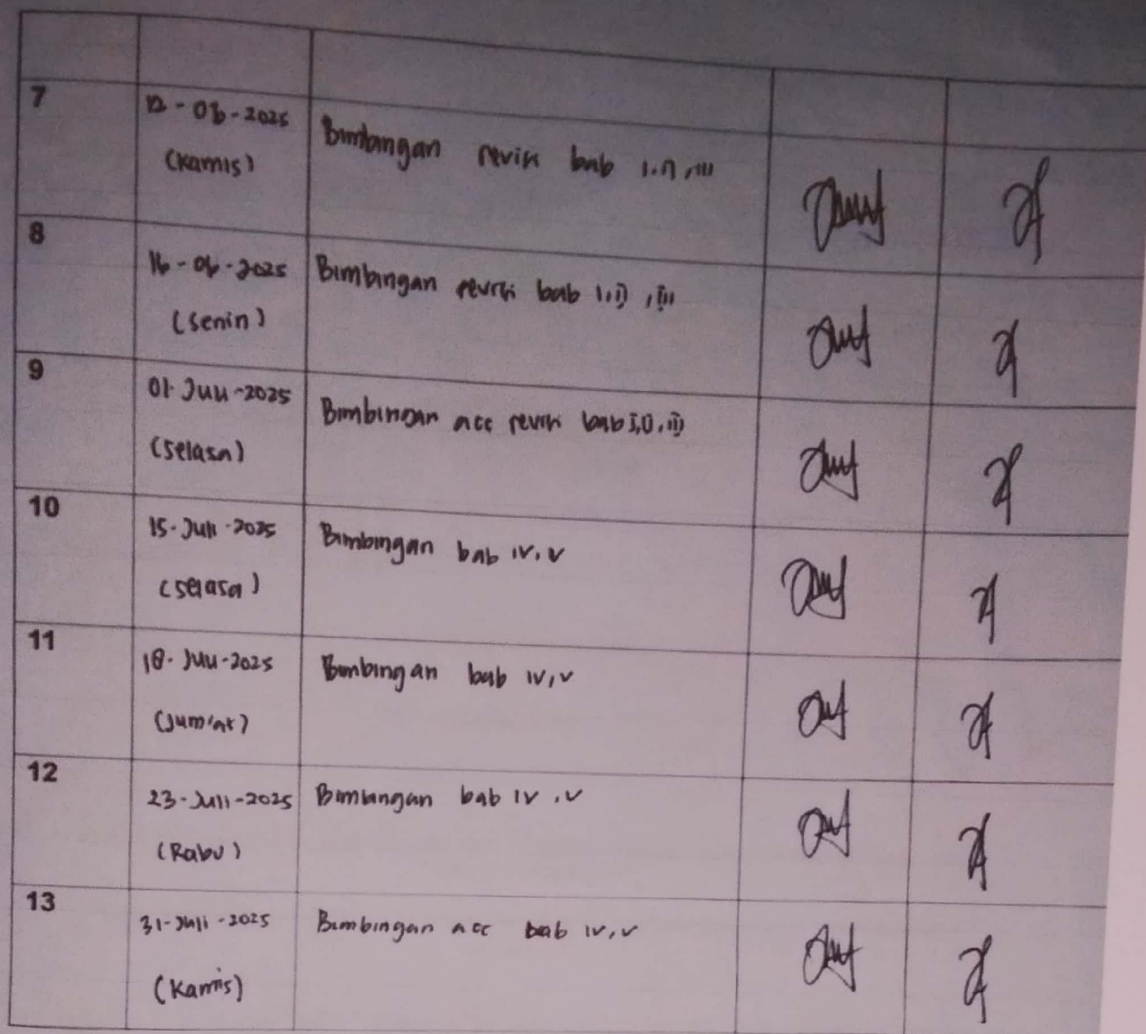 7
12-06-2025
(Kamis)
Bimbingan revisi bab I.II,III
8
16-06-2025
(Senin)
Bimbingan revisi bab I,II,III
9
01-Juli-2025
(Selasa)
Bimbingan acc revisi bab I,II,III
10
15-Juli-2025
(Selasa)
Bimbingan bab IV,V
11
18-Juli-2025
(Jum'at)
Bimbingan bab IV,V
12
23-Juli-2025
(Rabu)
Bimbingan bab IV,V
13
31-Juli-2025
(Kamis)
Bimbingan acc bab IV,V